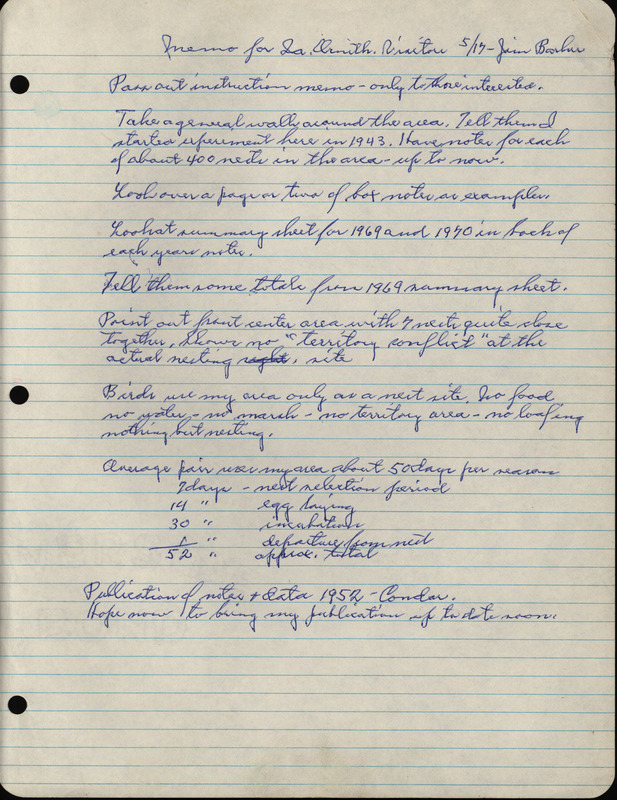 Memo for La. Ornith. Visitors 5/17 - Jim Barker
Pass out instruction memo - only to those interested.
Take a general walk around the area. Tell them I
started experiment here in 1943. Have notes for each
of about 400 nests in the area - up to now.
Look over a page or two of box notes as examples.
Look at summary sheet for 1969 and 1970 in back of
each years notes.
Tell them some totals from 1969 summary sheet.
Point out front center area with 7 nests quite close
together, shows no "territory conflict" at the
actual nesting site
Birds use my area only as a nest site. No food
no water - no marsh - no territory area - no loafing
nothing but nesting.
Average pair uses my area about 50 days per season
7 days - nest selection period
14 " egg laying
30 " incubation
1 " departure from nest
52 " approx. total
Publication of notes & data 1952 - Condor.
Hope now to bring my publication up to date soon.